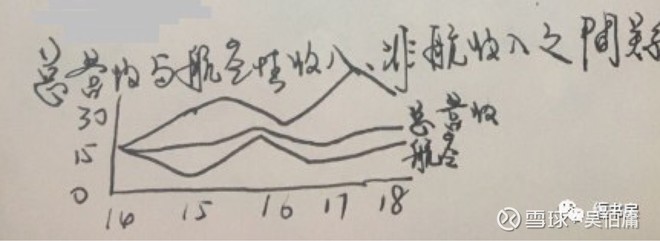 1)总营收与航空性收入、非航收入之間关系
30
总营收
15
航空
0
14 15 16 17 18
雪球·吴伯庸